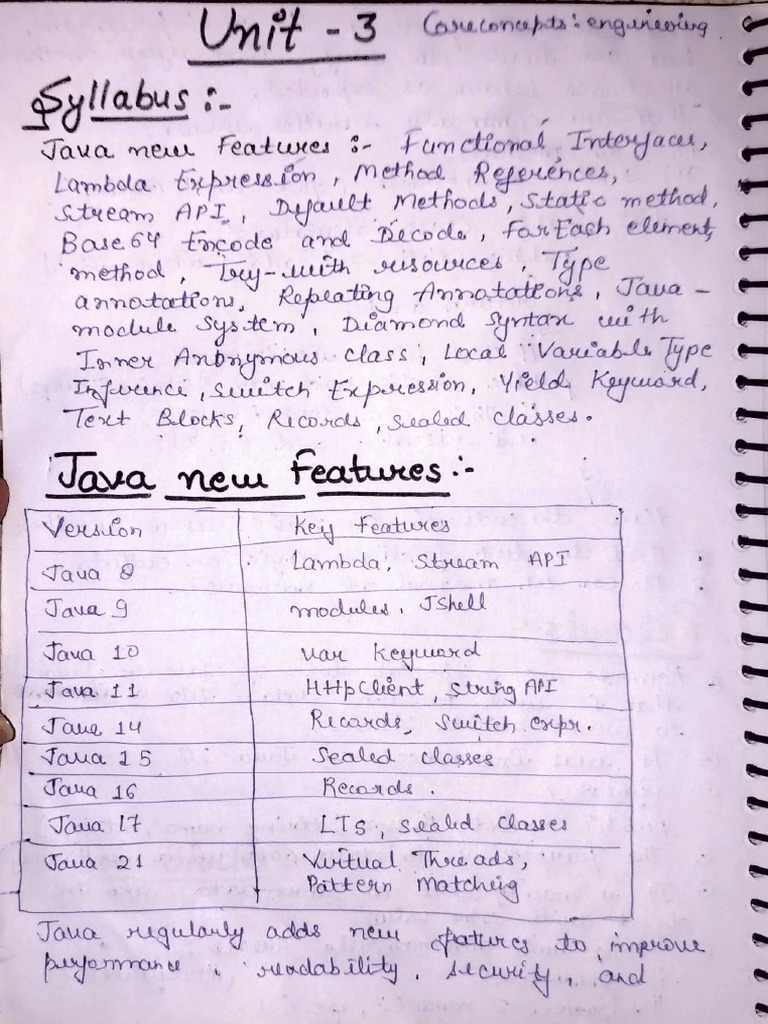 Unit - 3
Coreconcepts: engineering
Syllabus :-
Java new Features :- Functional Interfaces,
Lambda Expression, Method References,
Stream API, Default Methods, Static method,
Base 64 Encode and Decode, ForEach element,
method, Try-with resources, Type
annotations, Repeating Annotations, Java -
module System, Diamond Syntax with
Inner Anonymous class, Local Variable Type
Inference, Switch Expression, Yield Keyword,
Text Blocks, Records, Sealed Classes.
Java new Features :-
Version Key Features
Java 8 Lambda, Stream API
Java 9 modules, JShell
Java 10 var keyword
Java 11 HttpClient, String API
Java 14 Records, Switch expr.
Java 15 Sealed classes
Java 16 Records.
Java 17 LTS, Sealed Classes
Java 21 Virtual Threads,
Pattern Matching
Java regularly adds new fatures to improve
performance, readability, security, and